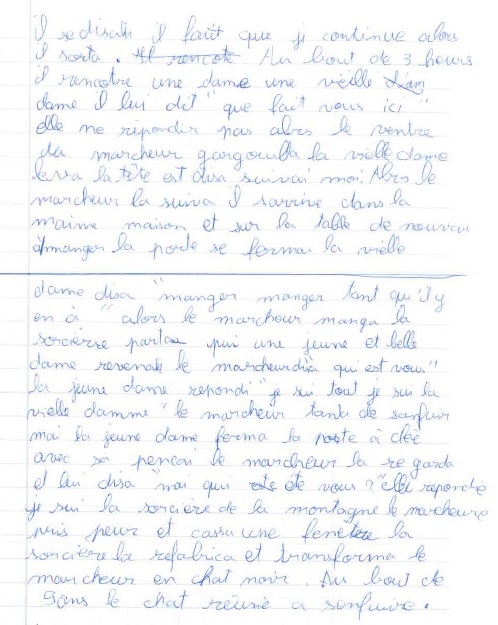 il se disait il faut que je continue alors
il sorta. Al rencote Au bout de 3 heurs
il rencotre une dame une vieille dam
dame il lui dit "que fait vous ici"
elle ne répondir pas alors le ventre
du marcheur gargouilla la vielle dame
leva la tête est disa suivai moi. Alors le
marcheur la suiva il sarrive dans la
maime maison et sur la table de nouveau
à manger la porte se ferma la vielle
dame disa "manger manger tant qu'il y
en à" alors le marcheur manga la
sorcierse partau puis une jeune et belle
dame revenait le marcheur dis qui est vous"
la jeune dame repondi "je sui tout je sur la
vielle damme" le marcheur tanta de sanfuir
mai la jeune dame ferma la porte à clée
avec sa pencai le marcheur la regarda
et lui disa "mai qui ete vous?" elle reponde
je sui la sorcière de la montagne le marcheure
puis peur et cassa une fenêtre la
sorcière la refabrica et transforma le
marcheur en chat noir. Au bout de
9ans le chat réusie a sanfuire.